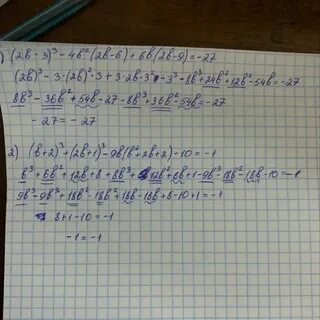 ) (2b-3)³-4b²(2b-6)+6b(2b-9)=-27
(2b)³-3·(2b)²·3+3·2b·3²-3³-8b³+24b²+12b²-54b=-27
8b³-36b²+54b-27-8b³+36b²-54b=-27
-27=-27
2) (b+2)³+(2b+1)³-9b(b²+2b+2)-10=-1
b³+6b²+12b+8+8b³+12b²+6b+1-9b³-18b²-18b-10=-1
9b³-9b³+18b²-18b²+18b-18b+8-10+1=-1
8+1-10=-1
-1=-1